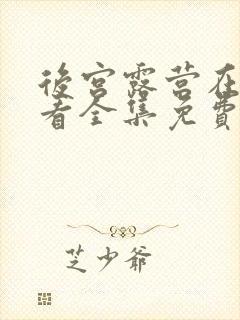 後宮露营在
看全集免費
芝少爺